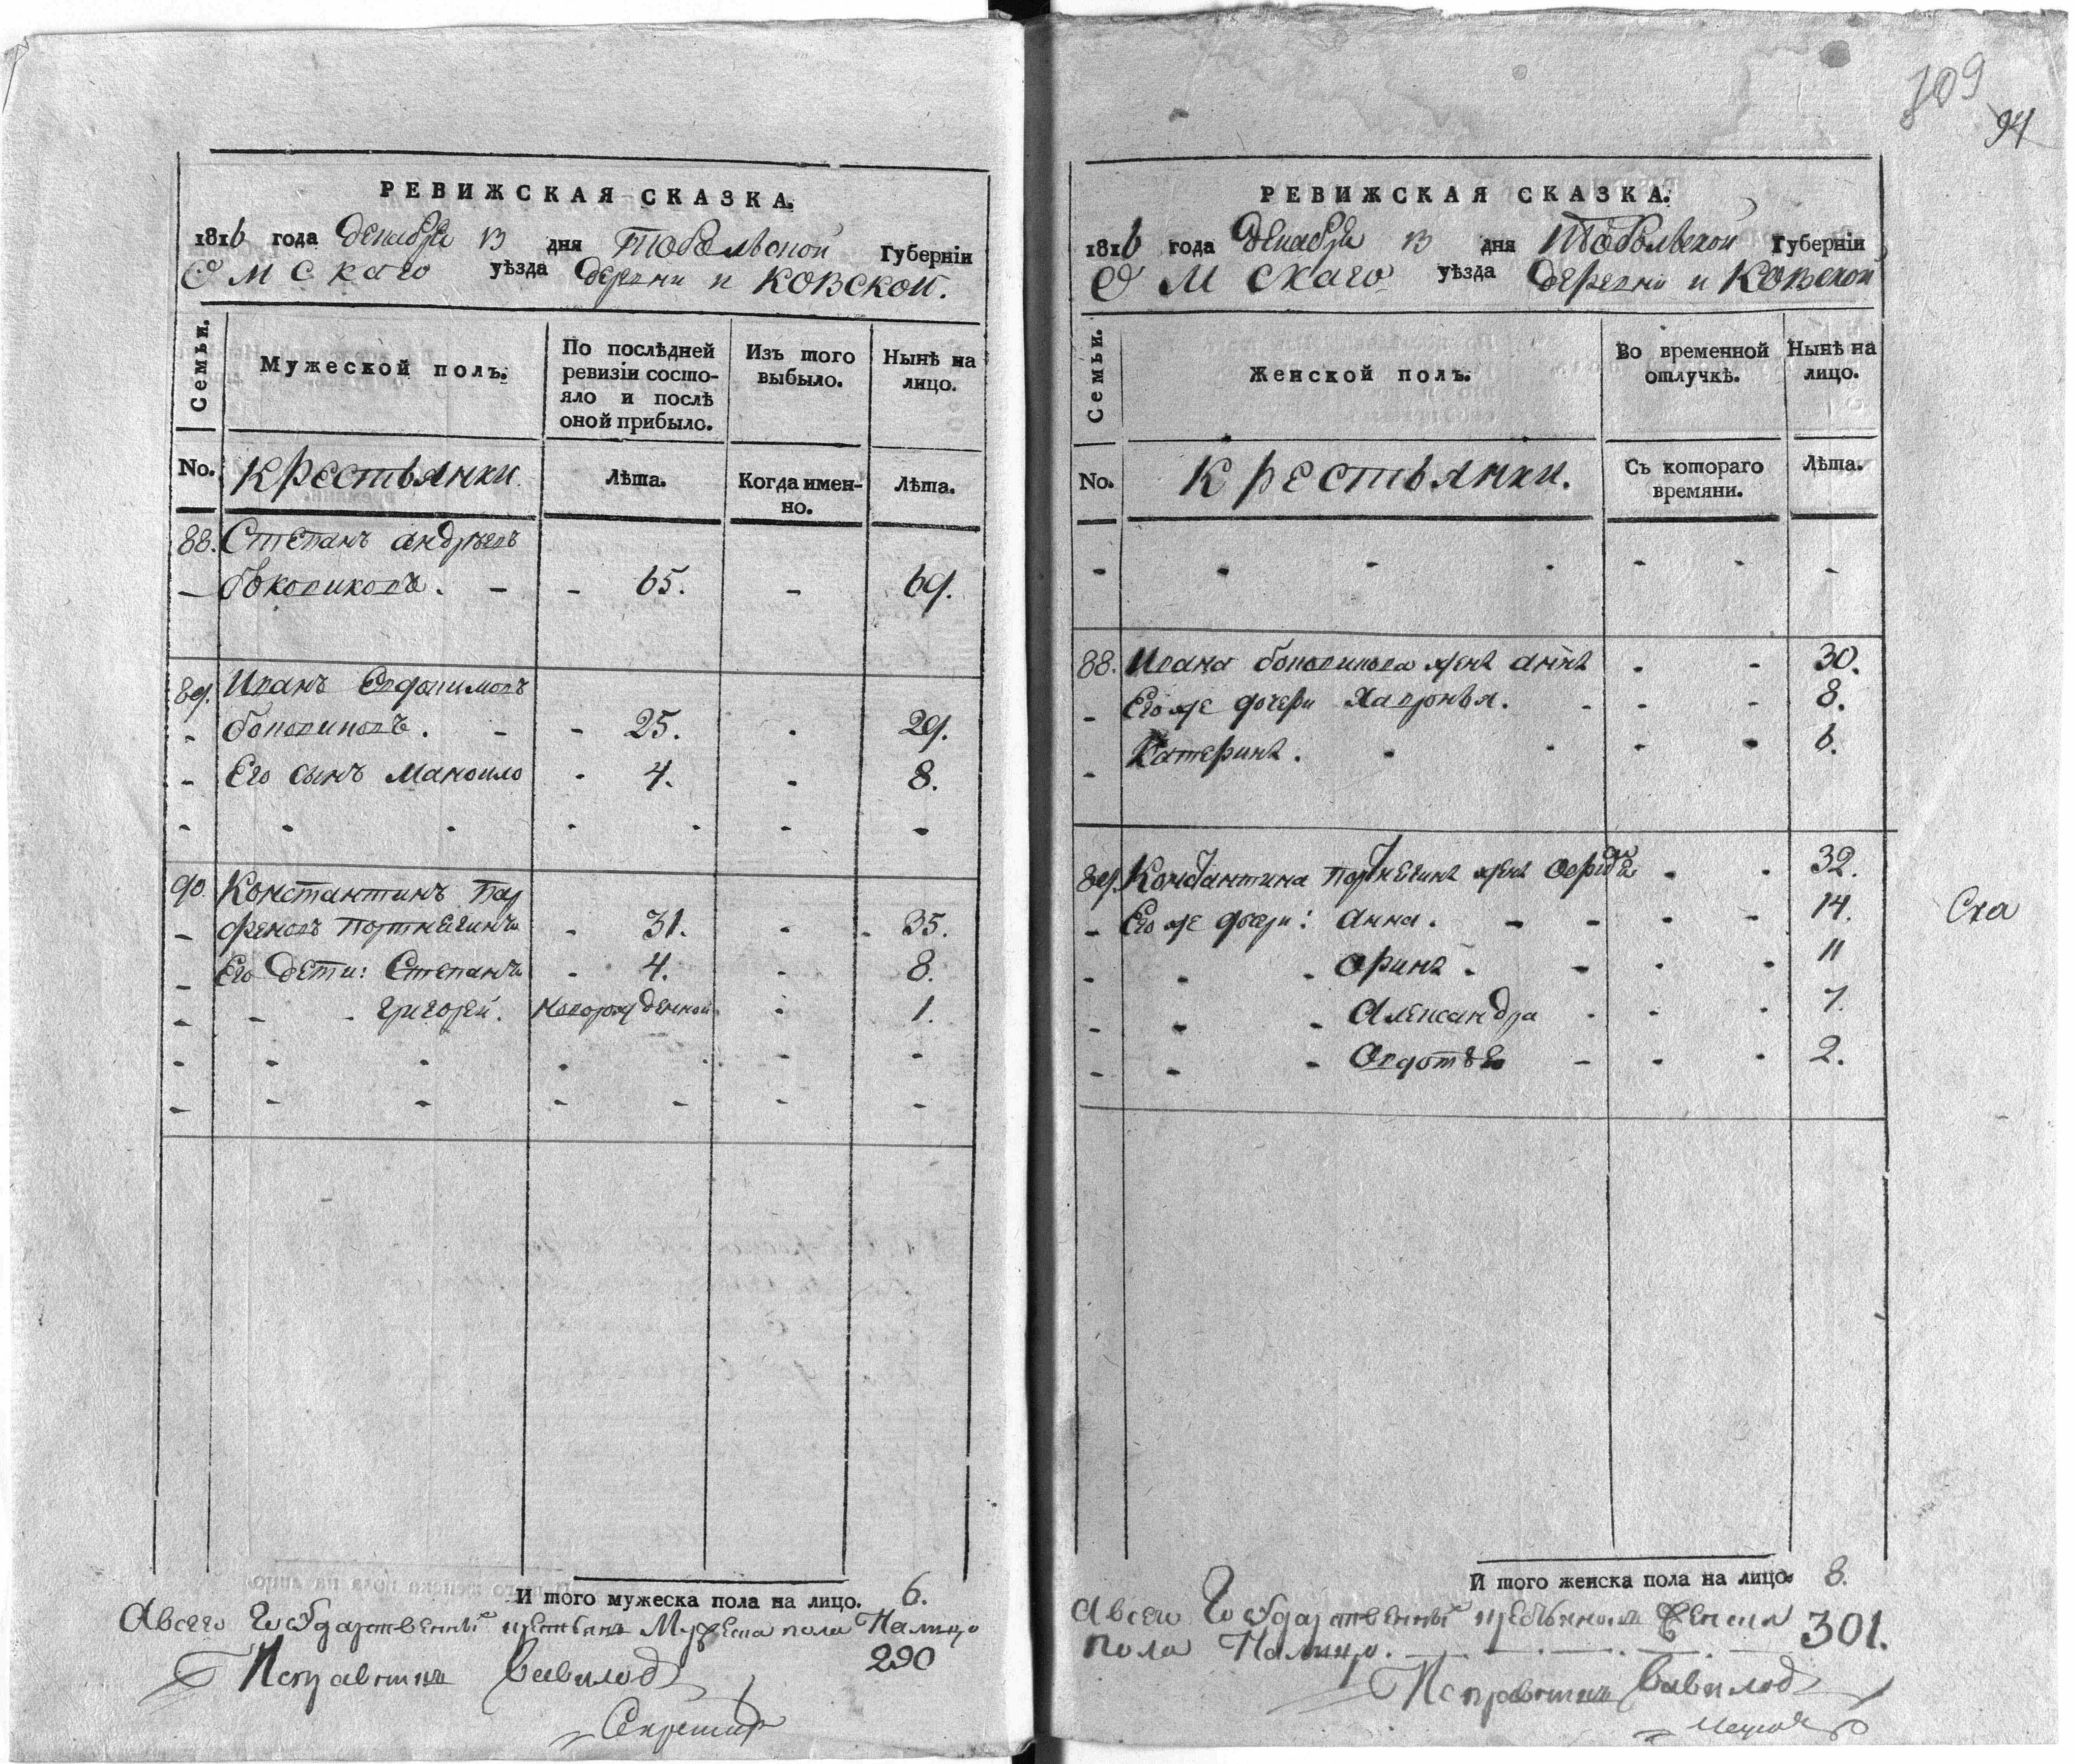 РЕВИЖСКАЯ СКАЗКА.
1816 года декабря 13 дня Тобольской Губерніи
Омскаго уѣзда деревни иковской.
Семьи.
Мужеской полъ.
По послѣдней ревизіи состояло и послѣ оной прибыло.
Изъ того выбыло.
Нынѣ на лицо.
No. крестьянки. Лѣта. Когда именно. Лѣта.
88. Степанъ андрѣевъ
боковиковъ. 65. 69.
89. Иванъ Евдокимовъ
боковиковъ. 25. 29.
Его сынъ Маноило 4. 8.
90. Константинъ пар
феновъ портнегинъ 31. 35.
Его дети: Степанъ 4. 8.
григорей. новорожденной 1.
И того мужеска пола на лицо. 6.
Авсего Государственныхъ крестьянъ Мужеска пола Налицо
290
Исправникъ
Секретарь
109
94
РЕВИЖСКАЯ СКАЗКА.
1816 года декабря 13 дня Тобольской Губерніи
Омскаго уѣзда деревни иковской
Семьи.
Женской полъ.
Во временной отлучкѣ.
Нынѣ на лицо.
No. крестьянки. Съ котораго времяни. Лѣта.
88. Ивана боковикова жена анна 30.
Его же дочери Хавронья. 8.
Катерина. 6.
89. Константина портнегина жена 32.
Его же дочери: анна. 14.
орина. 11
Александра 7.
Овдотья 2.
И того женска пола на лицо. 8.
Авсего Государственныхъ крестьянокъ женска 301.
пола Налицо.
Исправникъ